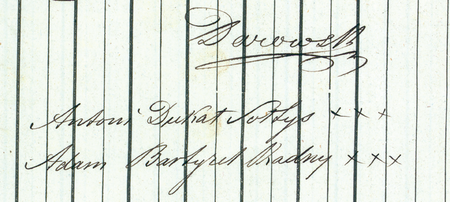 Darowski
Antoni Dukat Sołtys x x x
Adam Bartyzel Radny x x x